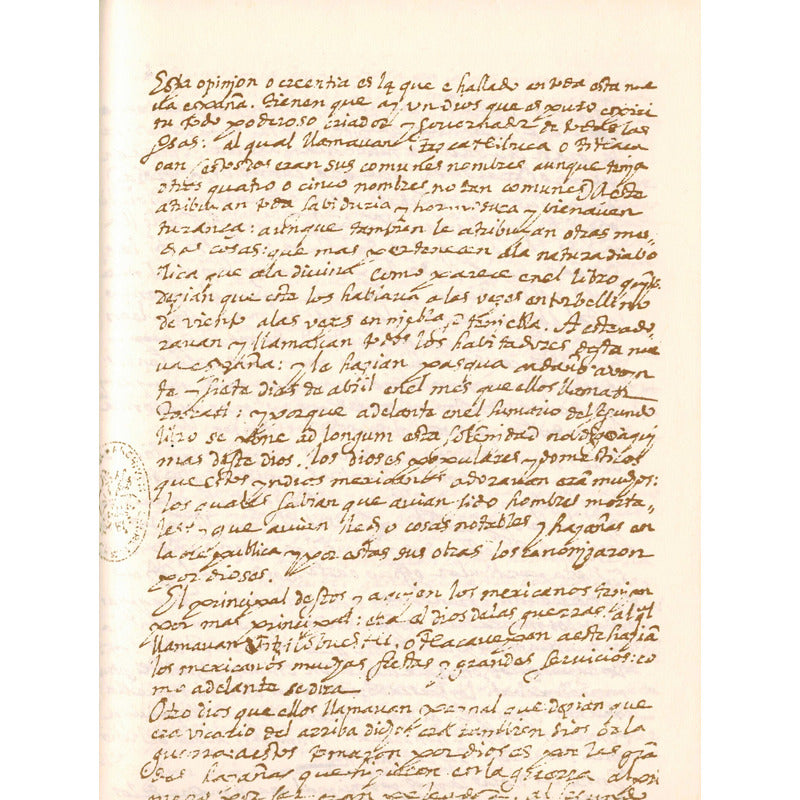 Esta opinion o creentia es la que e hallado en toda esta nue
ua españa. tienen que ay un dios que es puro espiri
tu todo poderoso criador y gouernador de todas las
cosas: al qual llamauan Tezcatlibuca o titlaca
oan estos dos eran sus comunes nombres aunque tenja
otros quatro o cinco nombres no tan comunes A este
atribuyan toda sabiduria y hermosura y bienauen
turança: aunque tambien le atribuyan otras mu
chas cosas: que mas pertenecen a la natura diabo
lica que a la divina como parece en el libro
dezian que este los hablaua a las vezes en torbellino
de viento a las vezes en niebla o tiniebla. A este ado
rauan y llamauan todos los habitadores desta nue
ua españa: y le hazian pasqua cada año a veyn
te y siete dias de abril en el mes que ellos llaman
Toxcatl: y porque adelante en el sumario del segundo
libro se pone ad longum esta solenidad no digo aqui
mas deste dios. los dioses populares y domesticos
que estos yndios mexicanos adorauan eran muchos:
los quales sabian que auian sido hombres morta
les: y que auian hecho cosas notables y hazañas en
la republica y por estas sus obras los canonizaron
por dioses.
El principal destos y a quien los mexicanos tenjan
por mas principal: era al dios de las guerras. al ql
llamauan o tlacauepan a este hazian
los mexicanos muchas fiestas y grandes servicios: co
mo adelante se dira
Otro dios que ellos llamauan paynal que dezian que
era vicario del arriba dicho era tambien dios de la
guerra: a estos tomaron por dioses por las gran
des hazañas que hizieron en la guerra